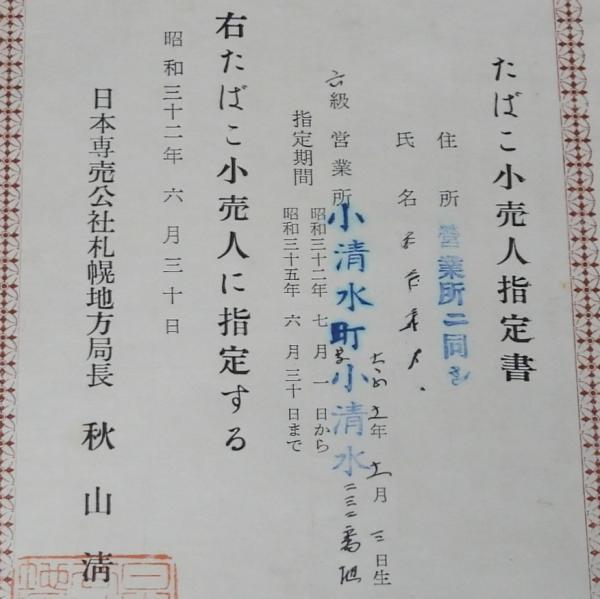 たばこ小売人指定書
住所 営業所ニ同じ
氏名
大正五年十一月三日生
六級営業所 小清水町字小清水二三二番地
指定期間 昭和三十二年 七月 一日から
昭和三十五年 六月三十日まで
右たばこ小売人に指定する
昭和三十二年 六月三十日
日本専売公社札幌地方局長 秋山清